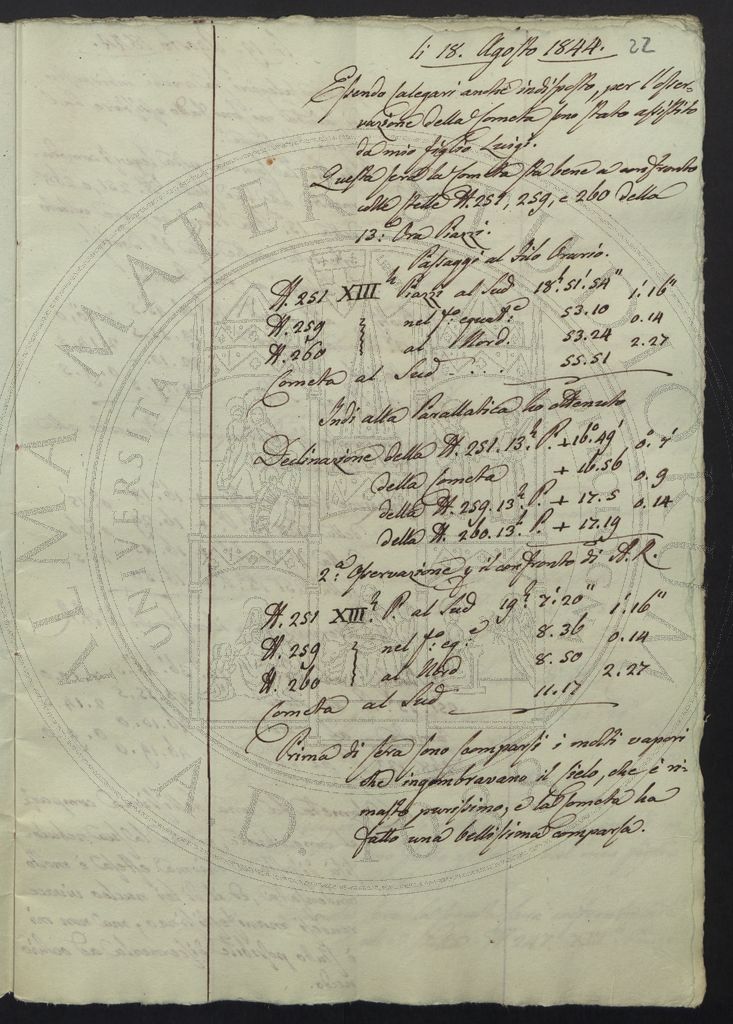 li 18. Agosto 1844. 22
Essendo Calegari anche indisposto, per l'osser-
vazione della Cometa sono stato assistito
da mio figlio Luigi.
Questa sera la Cometa sta bene a confronto
colle stelle N. 251, 259, e 260 della
13.ª Ora Piazzi.
Passaggi al Filo Orario.
N. 251 XIII h Piazzi al Sud 18h. 51'. 54" 1'. 16"
N. 259 nel fº. equat.e 53. 10 0. 14
N. 260 al Nord. 53. 24 2. 27
Cometa al Sud - . . . 55. 51
Indi alla Parallatica ho ottenuto
Declinazione della N. 251. 13.h P. + 16.º 49' 0.º 7'
della Cometa + 16. 56 0. 9
della N. 259. 13.h P. + 17. 5 0. 14
della N. 260. 13.h P. + 17. 19
2.ª Osservazione p il confronto di A. R.
N. 251 XIII h. P. al Sud 19h 7'. 20" 1'. 16"
N. 259 nel fº. eq.e 8. 36 0. 14
N. 260 al Nord 8. 50 2. 27
Cometa al Sud 11. 17
Prima di sera sono scomparsi i molti vapori
che ingombravano il Cielo, che è ri-
masto purissimo, e la Cometa ha
fatto una bellissima comparsa.
ALMA MATER STUDIORUM
UNIVERSITA
A.D. 1088